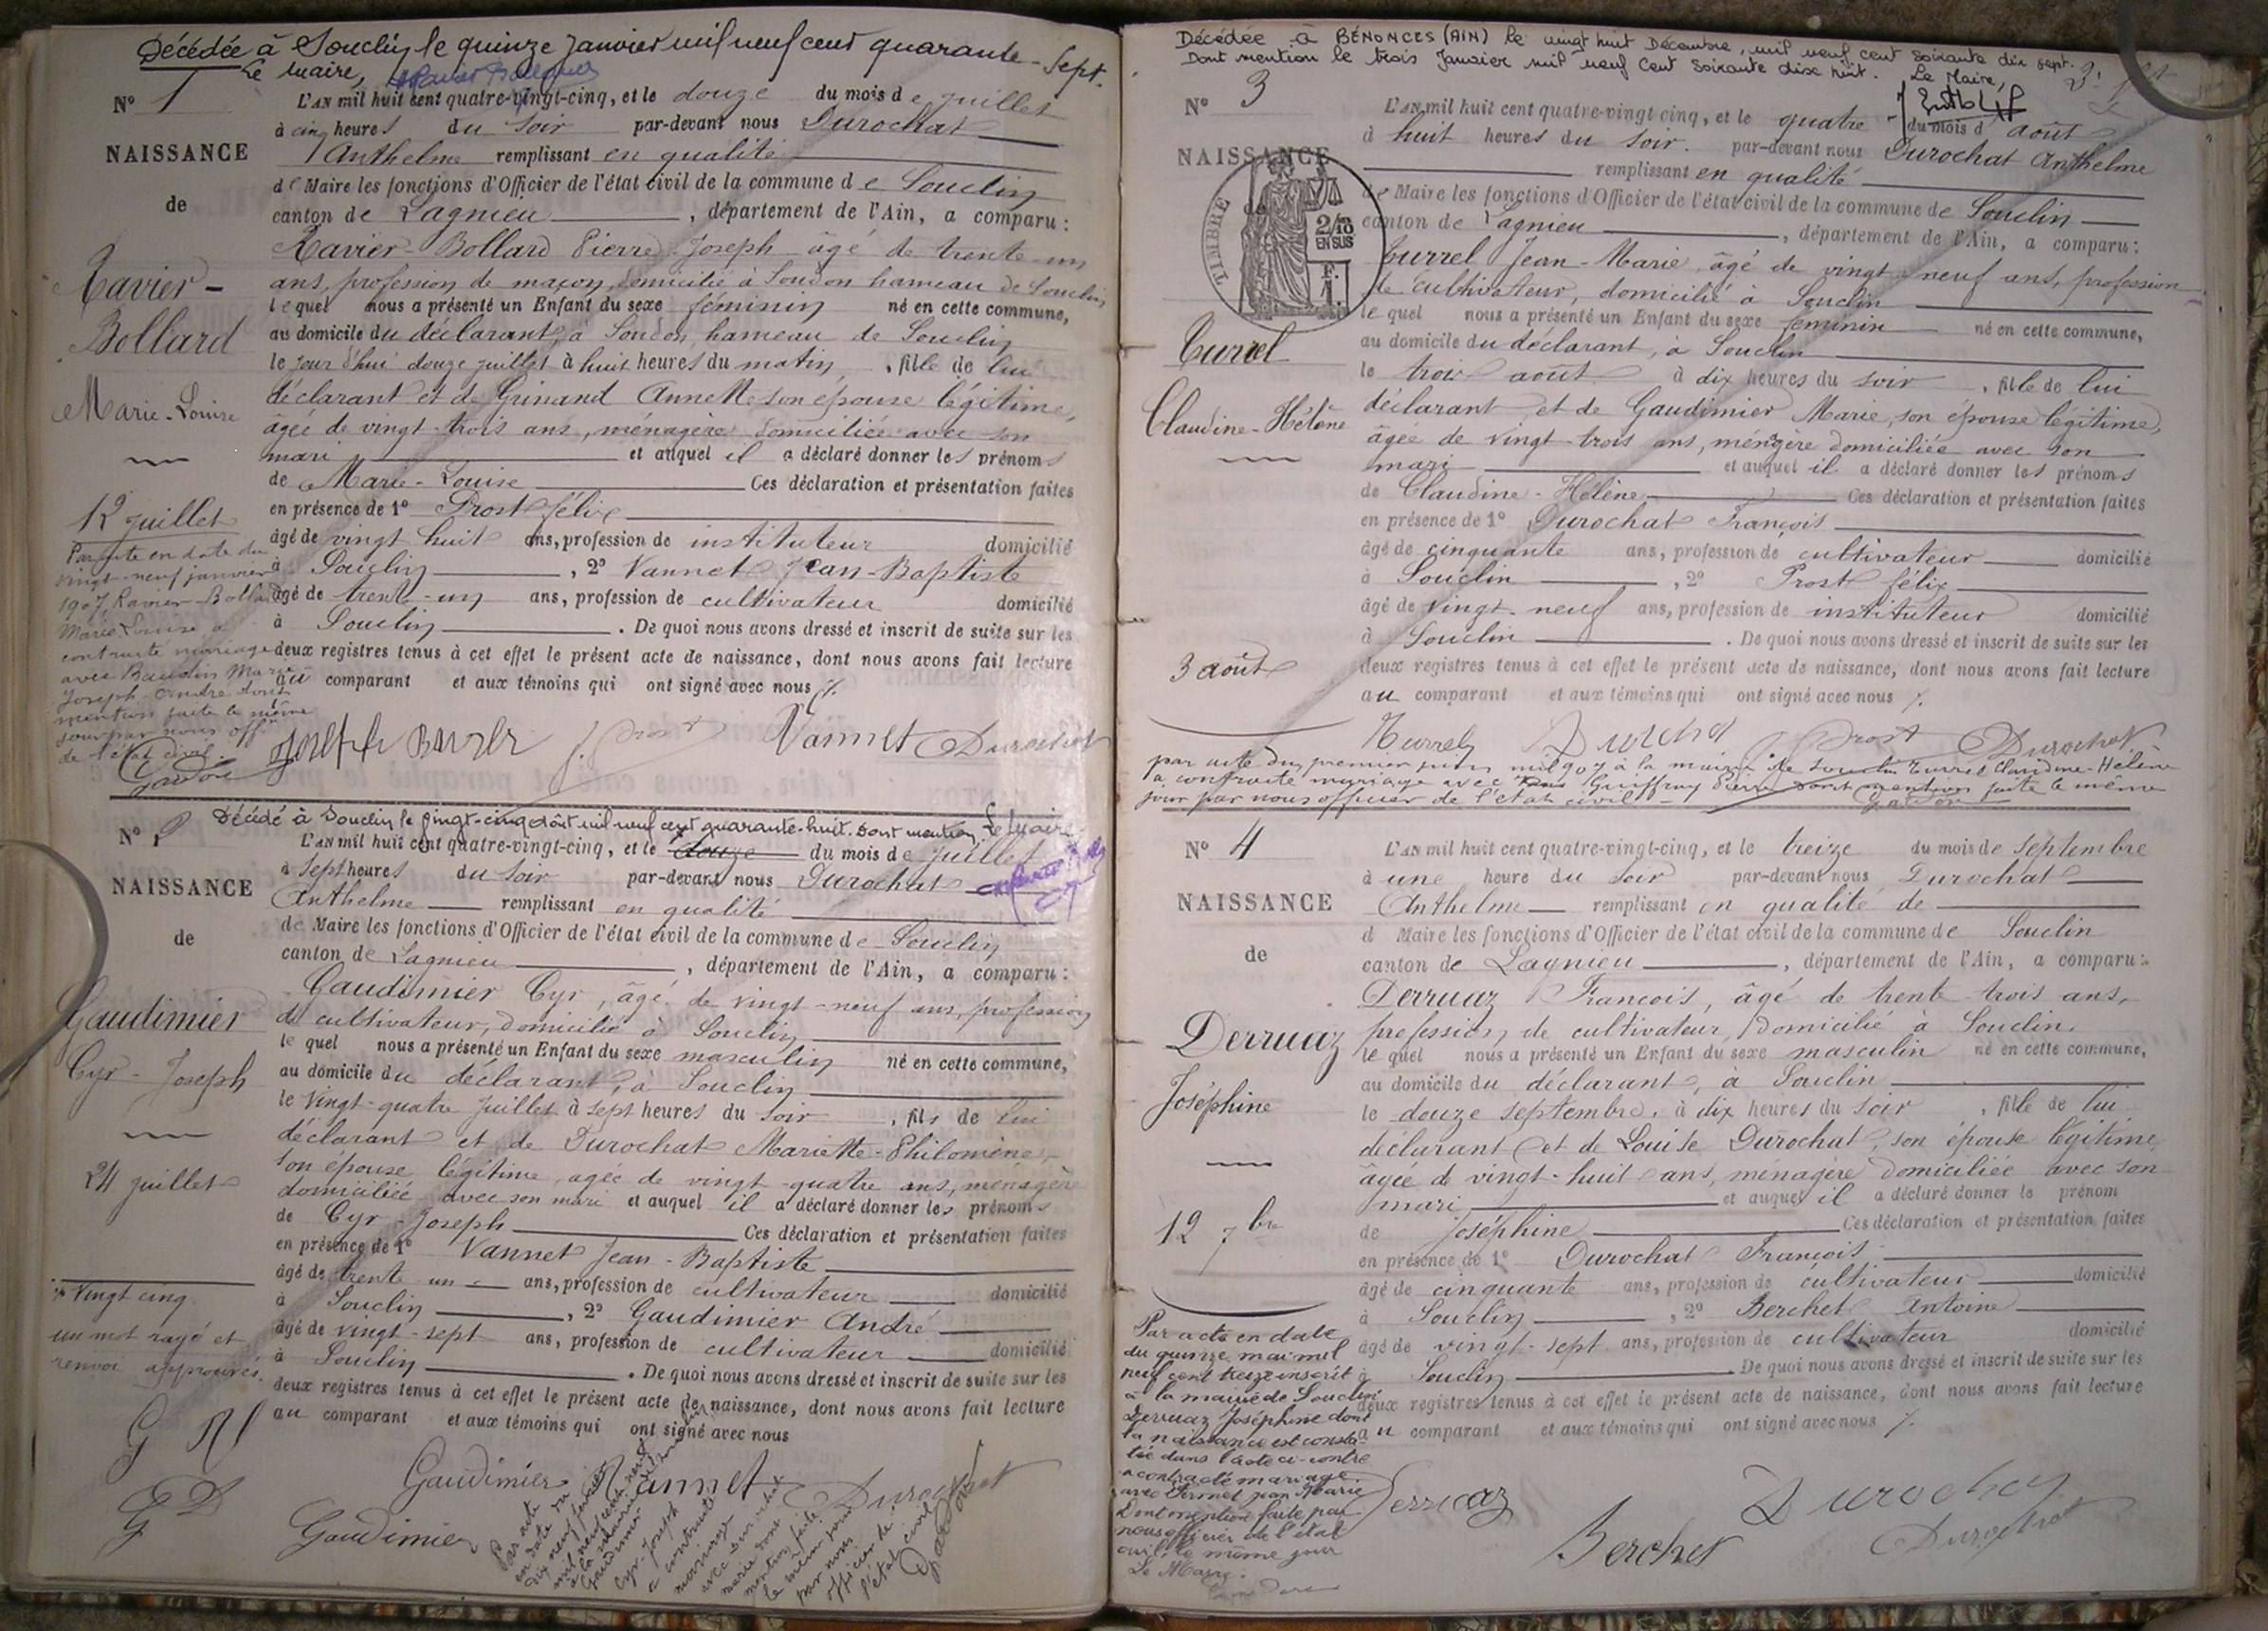 Décédée à Souclin le quinze janvier mil neuf cent quarante-sept.
Le Maire,
N° 1
NAISSANCE
de
Ravier-
Bollard
Marie-Louise
12 juillet
Par acte en date du
vingt-neuf janvier
1907 Ravier-Bollard
Marie Louise a
contracté mariage
avec Baudin Marie
Joseph André dont
mention faite le même
jour par nous off.
de l'état civil.
L'AN mil huit cent quatre-vingt-cinq, et le douze du mois de juillet
à cinq heures du soir par-devant nous Durochat
Anthelme remplissant en qualité
de Maire les fonctions d'Officier de l'état civil de la commune de Souclin
canton de Lagnieu, département de l'Ain, a comparu :
Ravier-Bollard Pierre-Joseph âgé de trente-un
ans, profession de maçon, domicilié à Soudon hameau de Souclin,
lequel nous a présenté un Enfant du sexe féminin né en cette commune,
au domicile du déclarant, à Soudon, hameau de Souclin
le jour d'hui douze juillet à huit heures du matin, fille de lui
déclarant et de Grinand Annette son épouse légitime,
âgée de vingt-trois ans, ménagère domiciliée avec son
mari et auquel il a déclaré donner les prénoms
de Marie-Louise Ces déclaration et présentation faites
en présence de 1° Prost félix
âgé de vingt huit ans, profession de instituteur domicilié
à Souclin, 2° Vannet Jean-Baptiste
âgé de trente-un ans, profession de cultivateur domicilié
à Souclin. De quoi nous avons dressé et inscrit de suite sur les
deux registres tenus à cet effet le présent acte de naissance, dont nous avons fait lecture
au comparant et aux témoins qui ont signé avec nous
Prost Vannet Durochat
Décédé à Souclin le vingt-cinq août mil neuf cent quarante-huit. Dont mention, Le Maire
N° 2
NAISSANCE
de
Gaudimier
Cyr-Joseph
24 juillet
Vingt cinq
un mot rayé et
renvoi approuvés.
L'AN mil huit cent quatre-vingt-cinq, et le douze du mois de juillet
à sept heures du soir par-devant nous Durochat
Anthelme remplissant en qualité
de Maire les fonctions d'Officier de l'état civil de la commune de Souclin
canton de Lagnieu, département de l'Ain, a comparu :
Gaudimier Cyr, âgé de vingt-neuf ans, profession
de cultivateur, domicilié à Souclin
lequel nous a présenté un Enfant du sexe masculin né en cette commune,
au domicile du déclarant, à Souclin
le vingt-quatre juillet à sept heures du soir, fils de lui
déclarant et de Durochat Mariette-Philomène,
son épouse légitime, agée de vingt-quatre ans, ménagère
domiciliée avec son mari et auquel il a déclaré donner les prénoms
de Cyr-Joseph Ces déclaration et présentation faites
en présence de 1° Vannet Jean-Baptiste
âgé de trente un ans, profession de cultivateur domicilié
à Souclin, 2° Gaudimier André
âgé de vingt-sept ans, profession de cultivateur domicilié
à Souclin. De quoi nous avons dressé et inscrit de suite sur les
deux registres tenus à cet effet le présent acte de naissance, dont nous avons fait lecture
au comparant et aux témoins qui ont signé avec nous
Gaudimier Vannet Durochat
Gaudimier
Par acte
en date du
dix neuf février
mil neuf cent neuf
à la mairie de
Gaudimier
Cyr-Joseph
a contracté
mariage
avec
marie dont
mention faite
le même jour
par nous
officier de
l'état civil
Décédée à BÉNONCES (AIN) le vingt huit Décembre, mil neuf cent soixante dix sept.
Dont mention le trois Janvier mil neuf cent soixante dix huit. Le Maire,
N° 3
NAISSANCE
TIMBRE
2/10
EN SUS
1 F.
Turrel
Claudine-Hélène
3 août
L'AN mil huit cent quatre-vingt-cinq, et le quatre du mois d août
à huit heures du soir. par-devant nous Durochat Anthelme
remplissant en qualité
de Maire les fonctions d'Officier de l'état civil de la commune de Souclin
canton de Lagnieu, département de l'Ain, a comparu :
Turrel Jean-Marie, âgé de vingt-neuf ans, profession
de cultivateur, domicilié à Souclin
lequel nous a présenté un Enfant du sexe féminin né en cette commune,
au domicile du déclarant, à Souclin
le trois août à dix heures du soir, fille de lui
déclarant et de Gaudimier Marie, son épouse légitime,
âgée de vingt-trois ans, ménagère domiciliée avec son
mari et auquel il a déclaré donner les prénoms
de Claudine-Hélène Ces déclaration et présentation faites
en présence de 1° Durochat François
âgé de cinquante ans, profession de cultivateur domicilié
à Souclin, 2° Prost félix
âgé de vingt-neuf ans, profession de instituteur domicilié
à Souclin. De quoi nous avons dressé et inscrit de suite sur les
deux registres tenus à cet effet le présent acte de naissance, dont nous avons fait lecture
au comparant et aux témoins qui ont signé avec nous
Turrel Prost Durochat
par acte du premier juin mil 907 à la mairie de Souclin Turrel Claudine-Hélène
a contracté mariage avec Guiffray Pierre dont mention faite le même
jour par nous officier de l'état civil
N° 4
NAISSANCE
de
Derruaz
Joséphine
12 7bre
Par acte en date
du quinze mai mil
neuf cent treize inscrit
à la mairie de Souclin
Derruaz Joséphine dont
la naissance est consta-
tée dans l'acte ci-contre
a contracté mariage
avec jean Marie
Dont mention faite par
nous officier de l'état
civil, le même jour
Le Maire.
L'AN mil huit cent quatre-vingt-cinq, et le treize du mois de septembre
à une heure du soir par-devant nous Durochat
Anthelme remplissant en qualité de
d Maire les fonctions d'Officier de l'état civil de la commune de Souclin
canton de Lagnieu, département de l'Ain, a comparu :
Derruaz François, âgé de trente-trois ans,
profession de cultivateur, domicilié à Souclin,
lequel nous a présenté un Enfant du sexe masculin né en cette commune,
au domicile du déclarant, à Souclin
le douze septembre, à dix heures du soir, fille de lui
déclarant et de Louise Durochat, son épouse légitime
âgée de vingt-huit ans, ménagère domiciliée avec son
mari et auquel il a déclaré donner le prénom
de Joséphine Ces déclaration et présentation faites
en présence de 1° Durochat François
âgé de cinquante ans, profession de cultivateur domicilié
à Souclin, 2° Berchet Antoine
âgé de vingt-sept ans, profession de cultivateur domicilié
à Souclin De quoi nous avons dressé et inscrit de suite sur les
deux registres tenus à cet effet le présent acte de naissance, dont nous avons fait lecture
au comparant et aux témoins qui ont signé avec nous
Derruaz
Berchet Durochat